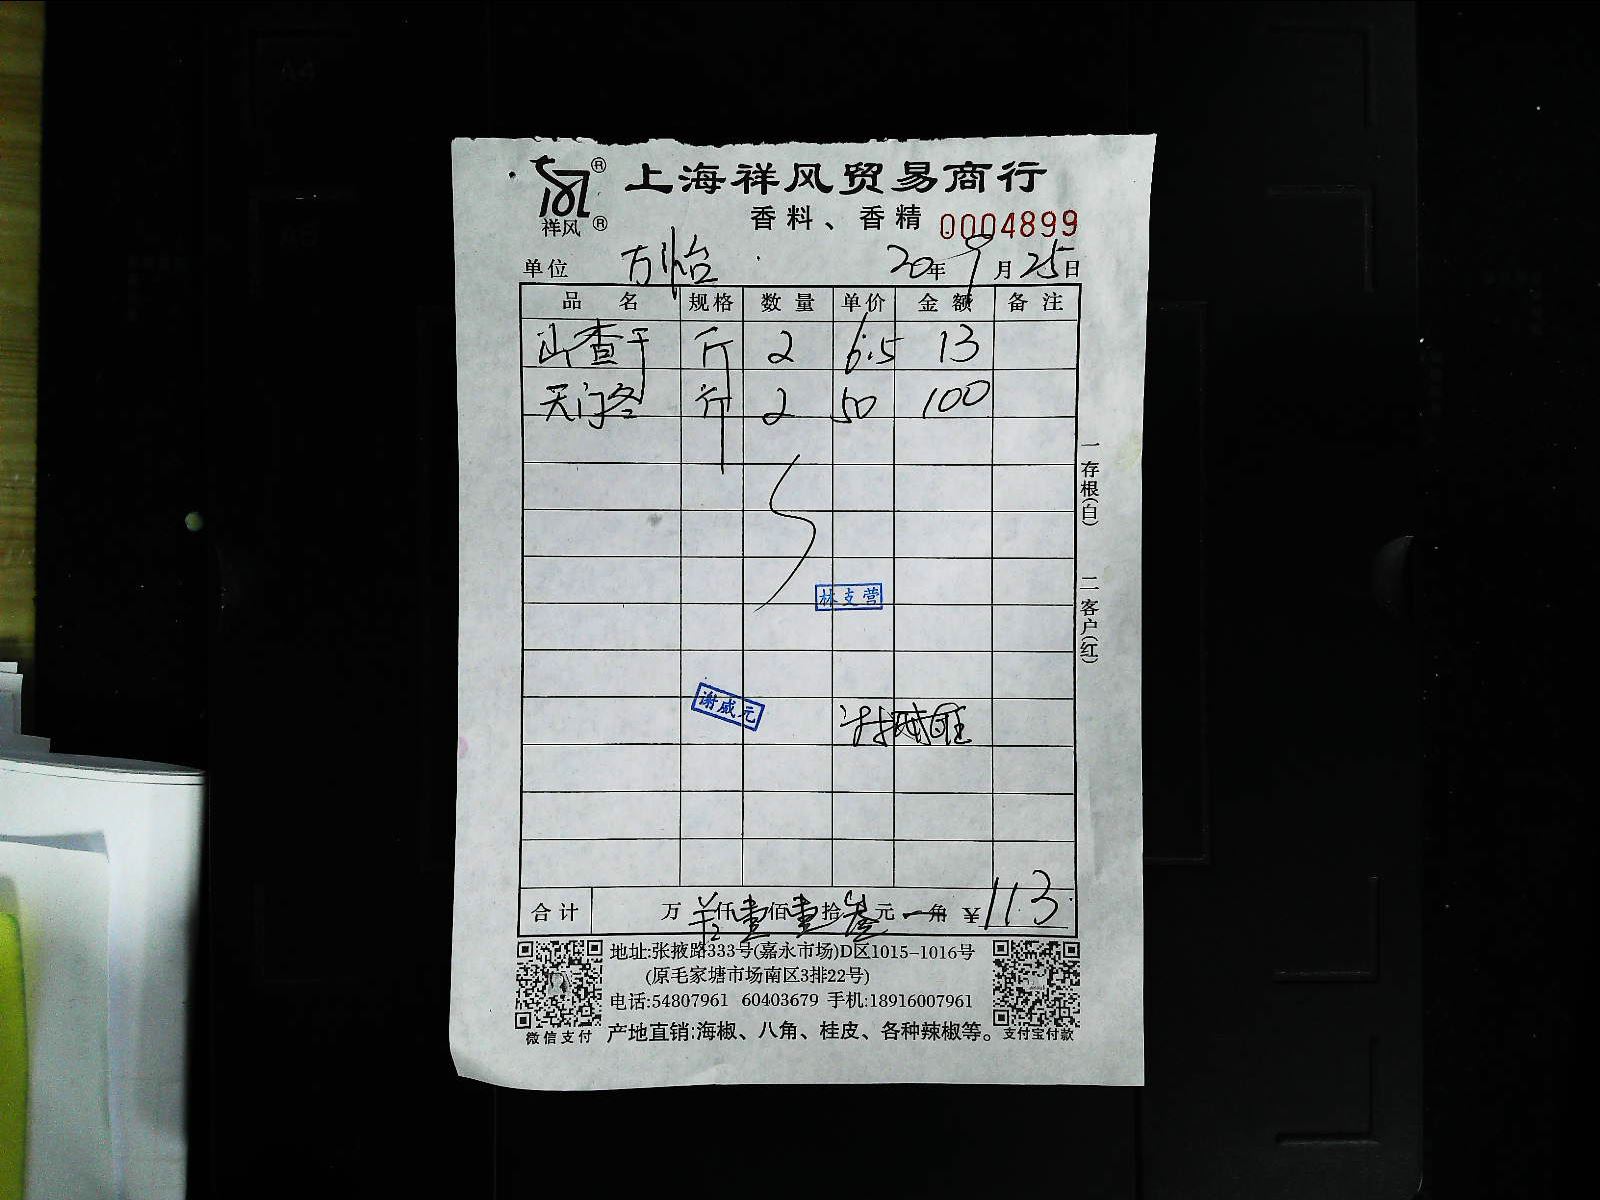 上海祥风贸易商行
祥风
香料、香精 0004899
单位 方怡 20年9月25日
品名 规格 数量 单价 金额 备注
山查干 斤 2 6.5 13
天门冬 斤 2 50 100
一存根(白) 二客户(红)
林支营
谢威元
合计 万 仟壹佰壹拾叁元 角 ¥113
地址:张掖路333号(嘉永市场)D区1015-1016号
(原毛家塘市场南区3排22号)
电话:54807961 60403679 手机:18916007961
微信支付 产地直销:海椒、八角、桂皮、各种辣椒等。 支付宝付款